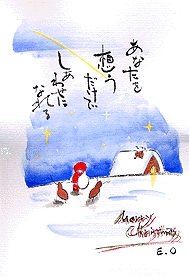 あなたを
想う
だけで
しあわせに
なれる
Merry
Christmas
E.O